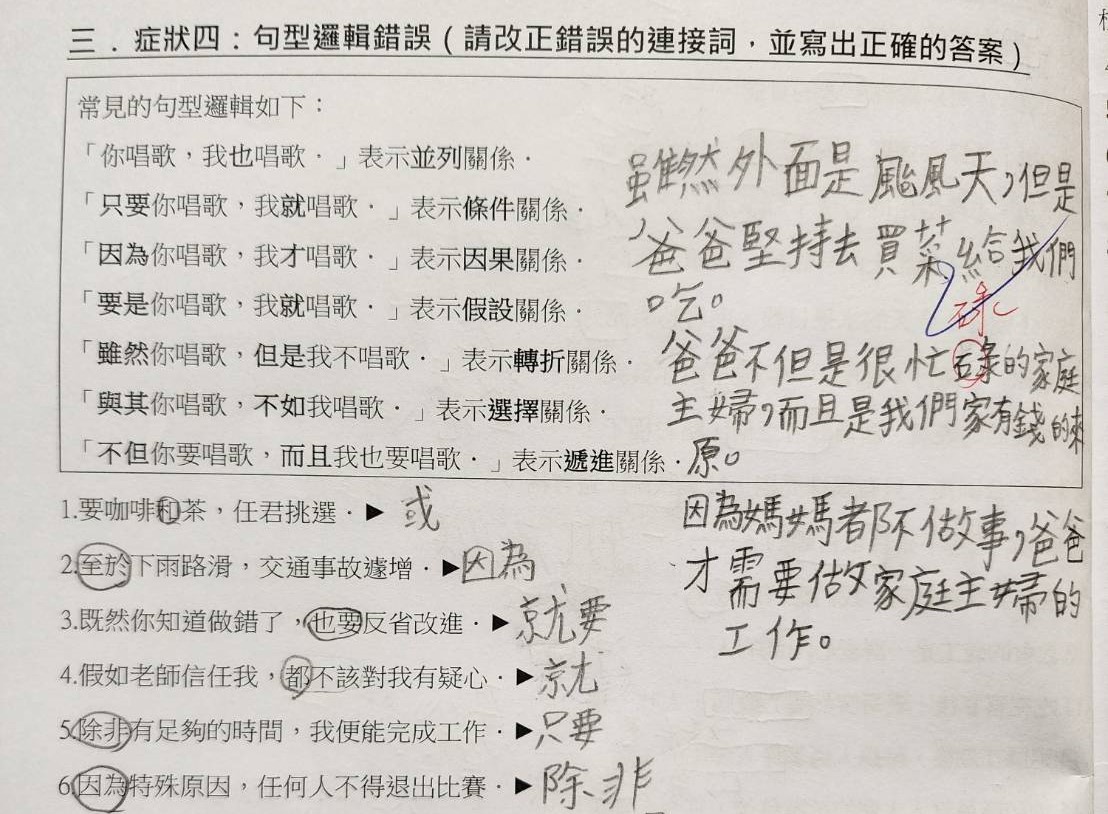 三．症狀四：句型邏輯錯誤（請改正錯誤的連接詞，並寫出正確的答案）
常見的句型邏輯如下：
「你唱歌，我也唱歌．」表示並列關係．
「只要你唱歌，我就唱歌．」表示條件關係．
「因為你唱歌，我才唱歌．」表示因果關係．
「要是你唱歌，我就唱歌．」表示假設關係．
「雖然你唱歌，但是我不唱歌．」表示轉折關係．
「與其你唱歌，不如我唱歌．」表示選擇關係．
「不但你要唱歌，而且我也要唱歌．」表示遞進關係．
雖然外面是颱風天，但是
爸爸堅持去買菜給我們
吃。
碌
爸爸不但是很忙碌的家庭
主婦，而且是我們家有錢的來
原。
因為媽媽都不做事，爸爸
才需要做家庭主婦的
工作。
1.要咖啡和茶，任君挑選．▶或
2.至於下雨路滑，交通事故遽增．▶因為
3.既然你知道做錯了，也要反省改進．▶就要
4.假如老師信任我，都不該對我有疑心．▶就
5.除非有足夠的時間，我便能完成工作．▶只要
6.因為特殊原因，任何人不得退出比賽．▶除非